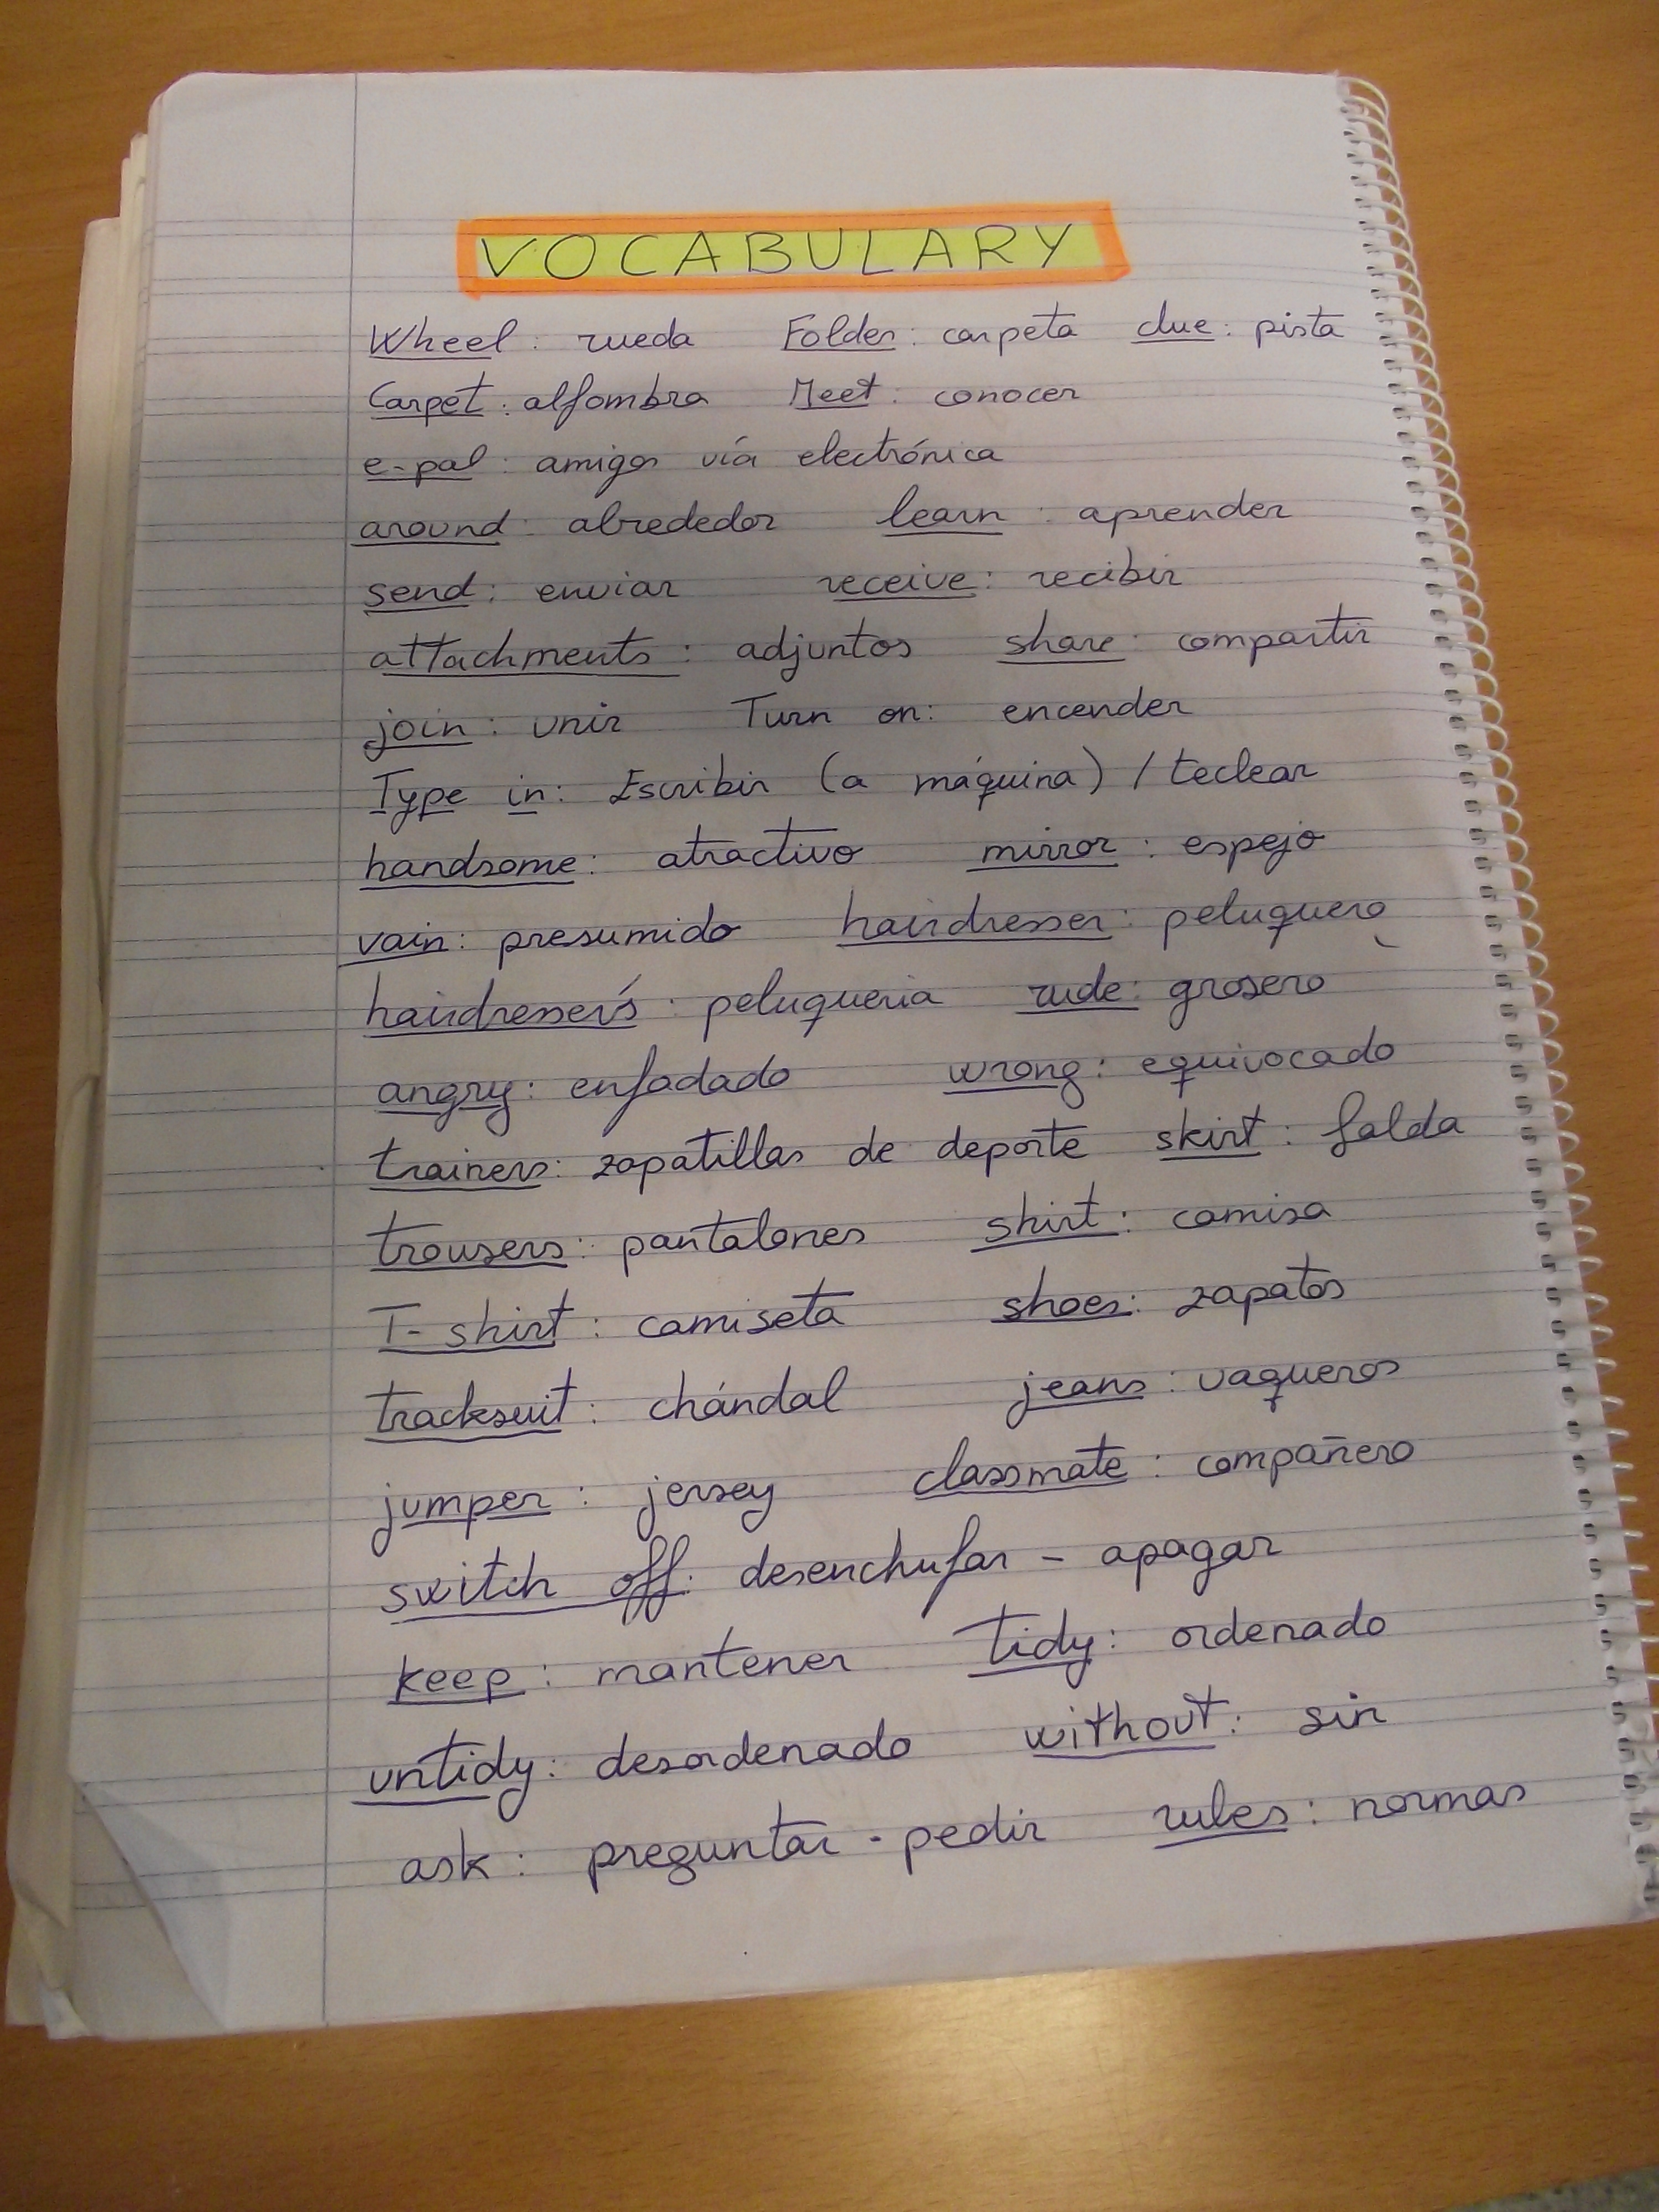 VOCABULARY
Wheel: rueda Folder: carpeta clue: pista
Carpet: alfombra Meet: conocer
e-pal: amigos vía electrónica
around: alrededor learn: aprender
send: enviar receive: recibir
attachments: adjuntos share: compartir
join: unir Turn on: encender
Type in: Escribir (a máquina) / teclear
handsome: atractivo mirror: espejo
vain: presumido hairdresser: peluquero
hairdresser's: peluqueria rude: grosero
angry: enfadado wrong: equivocado
trainers: zapatillas de deporte skirt: falda
trousers: pantalones shirt: camisa
T-shirt: camiseta shoes: zapatos
tracksuit: chándal jeans: vaqueros
jumper: jersey classmate: compañero
switch off: desenchufar - apagar
keep: mantener tidy: ordenado
untidy: desordenado without: sin
ask: preguntar - pedir rules: normas